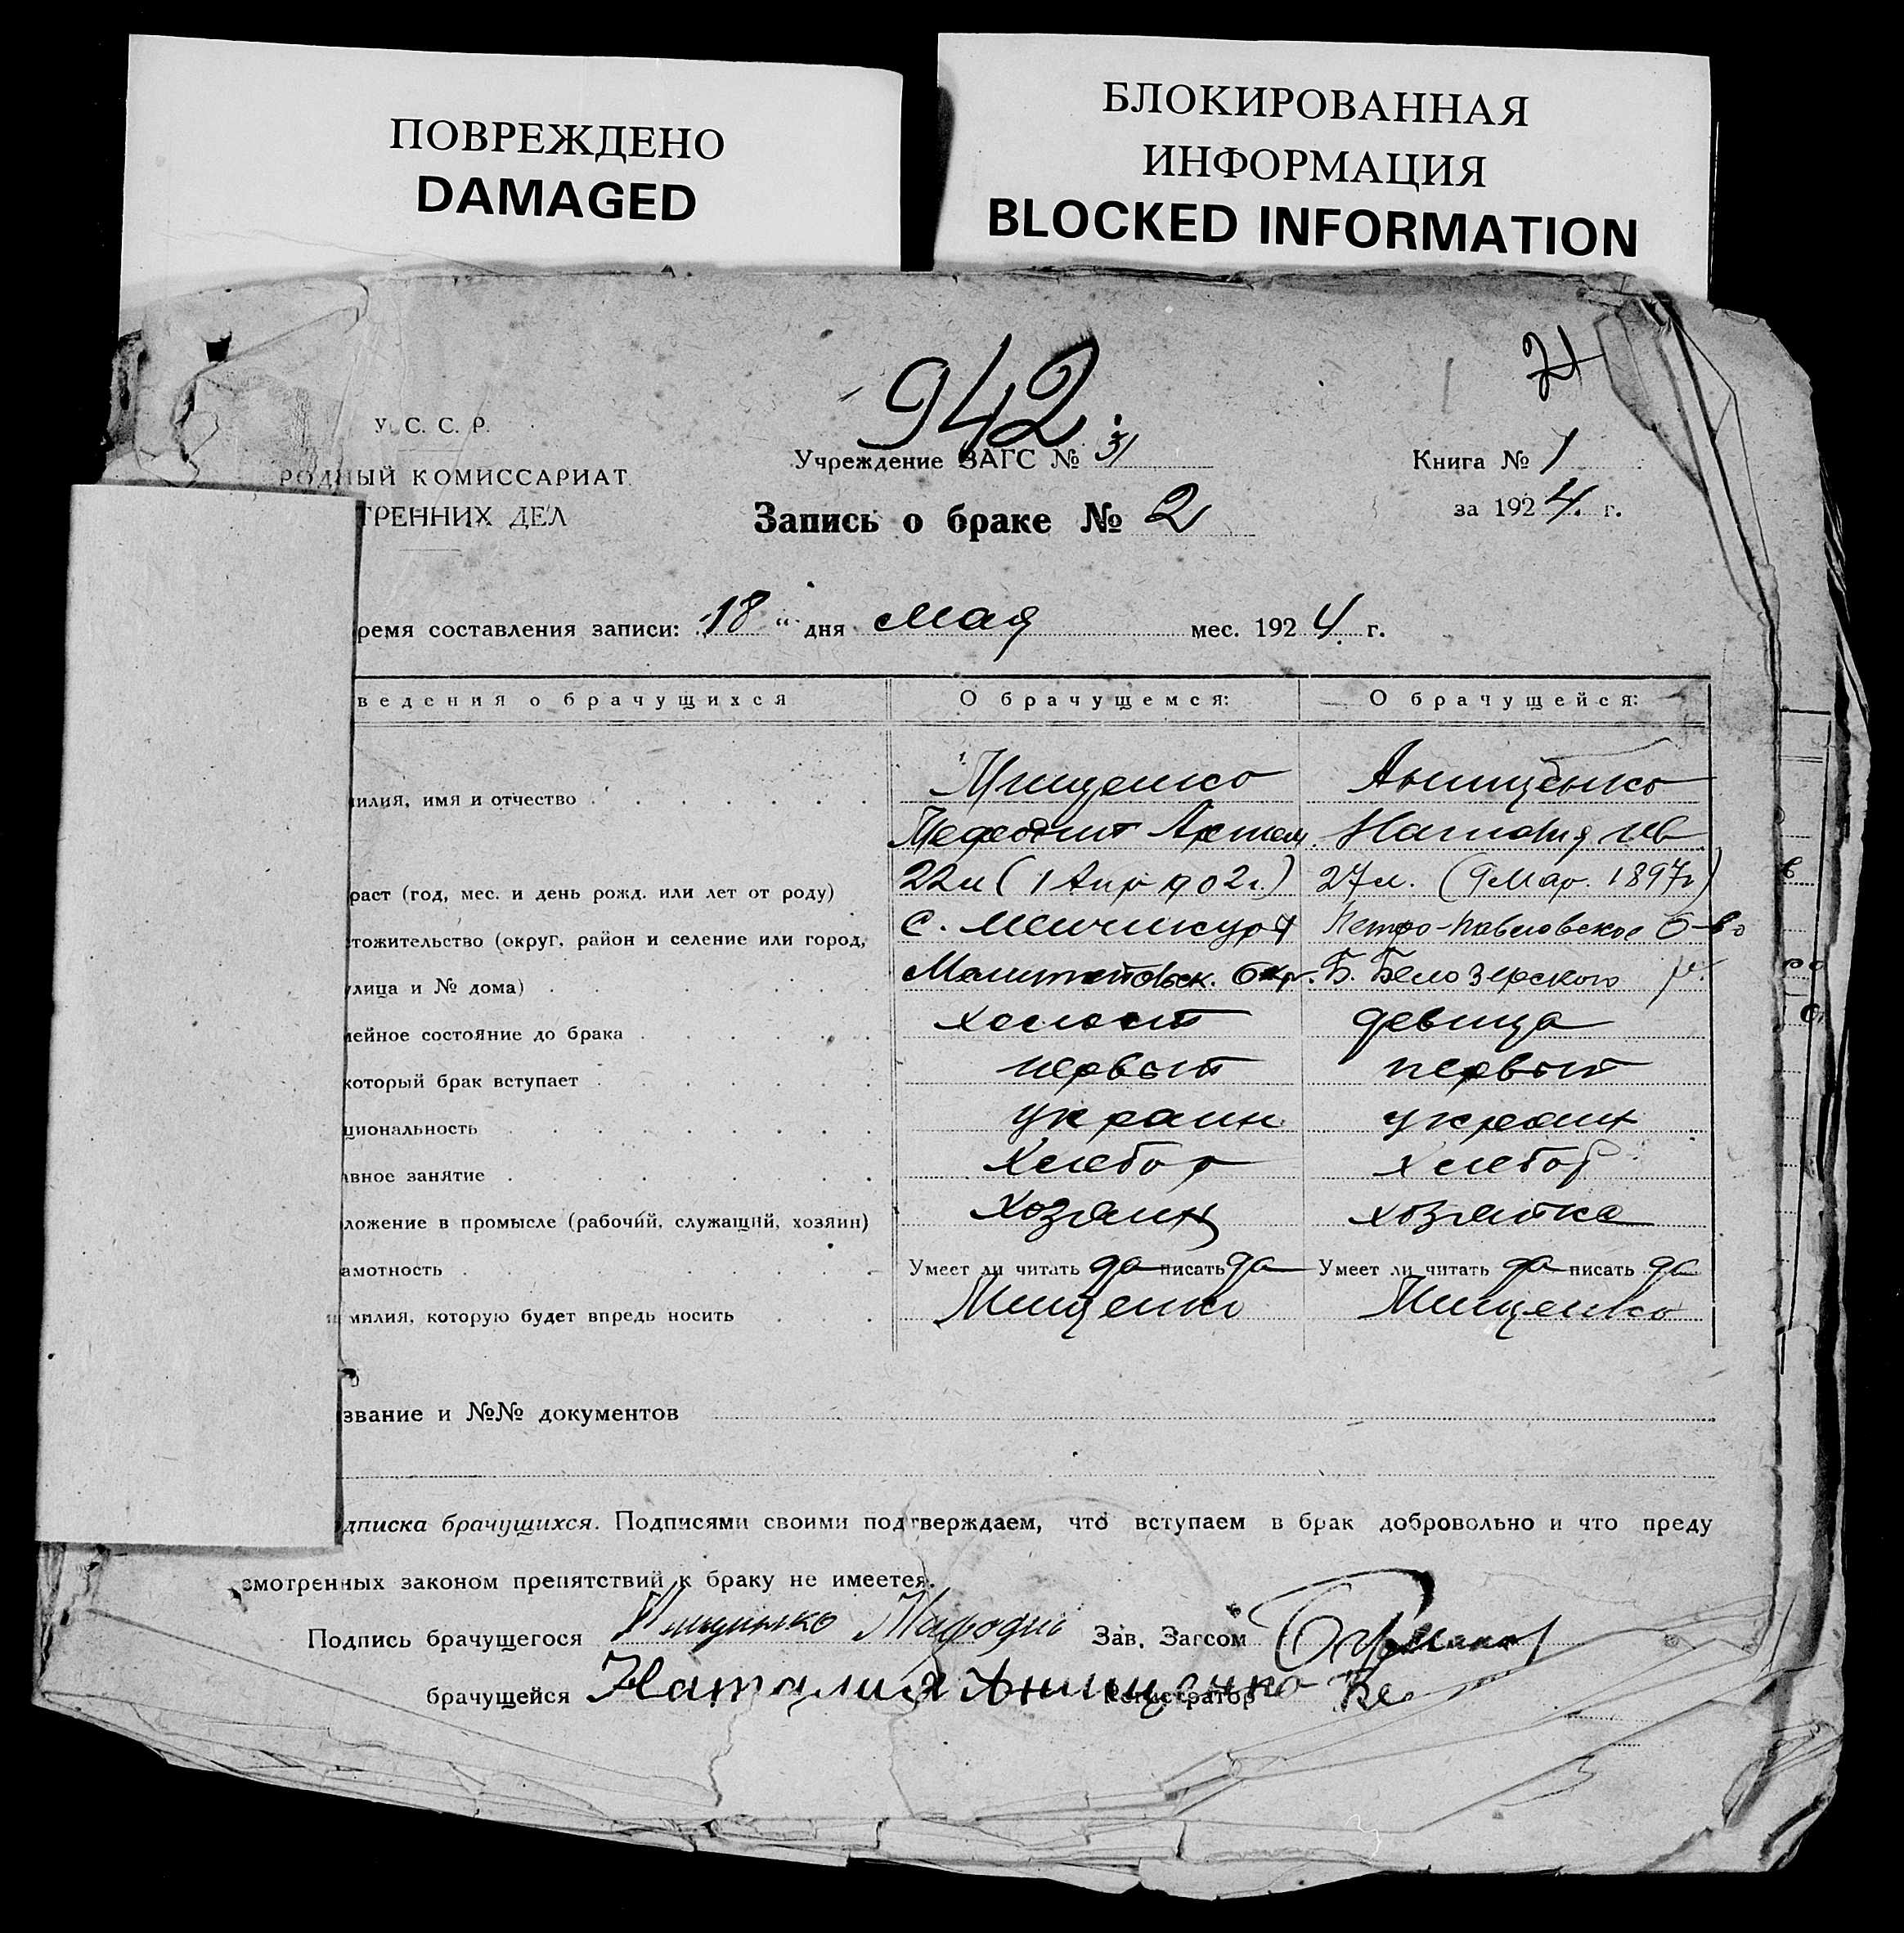 ПОВРЕЖДЕНО
DAMAGED
БЛОКИРОВАННАЯ
ИНФОРМАЦИЯ
BLOCKED INFORMATION
942.
У. С. С. Р.
РОДНЫЙ КОМИССАРИАТ
ТРЕННИХ ДЕЛ
Учреждение ЗАГС № 31
Книга № 1
Запись о браке № 2
за 1924. г.
ремя составления записи: "18" дня мая мес. 1924 г.
ведения о брачущихся О брачущемся: О брачущейся:
илия, имя и отчество Мищенко Анищенко
Мефодит Артем. Наталия Ив
раст (год, мес. и день рожд. или лет от роду) 22 л (1 Апр 902 г.) 27 л. (9 Мар. 1897 г)
тожительство (округ, район и селение или город, с. Менчикур Петро-Павловское О-во
лица и № дома) Мелитопольск. Окр. Б. Белозерского р.
ейное состояние до брака холост девица
который брак вступает первый первый
циональность украин украин
авное занятие хлебор хлебор
ложение в промысле (рабочий, служащий, хозяин) хозяин хозяйка
амотность Умеет ли читать да писать да Умеет ли читать да писать да
милия, которую будет впредь носить Мищенко Мищенко
звание и №№ документов
дписка брачущихся. Подписями своими подтверждаем, что вступаем в брак добровольно и что преду
смотренных законом препятствий к браку не имеется.
Подпись брачущегося Мищинко Мифодий Зав. Загсом
брачущейся Наталия Анищенко Регистратор